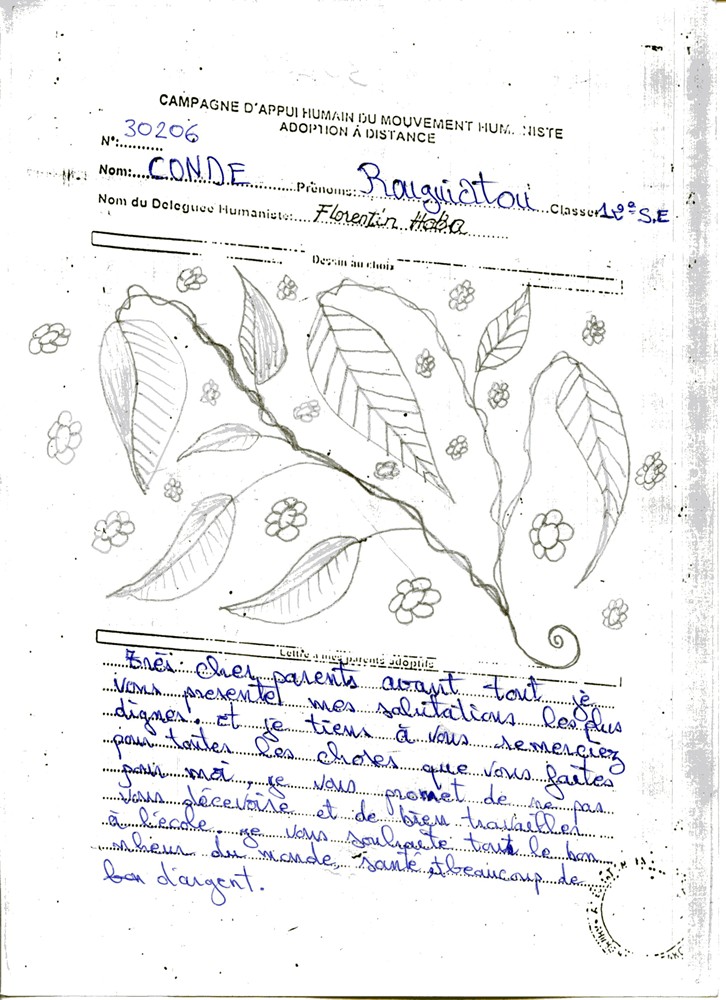 CAMPAGNE D'APPUI HUMAIN DU MOUVEMENT HUMANISTE
ADOPTION À DISTANCE
N°:.......... 30206
Nom:... CONDE ............Prénoms: Rouguiatou ...Classe: 12e S.E
Nom du Deleguée Humaniste: Florentin Haba
Dessin au choix
Lettre à mes parents adoptifs
Très chers parents avant tout je
vous presente mes salutations les plus
dignes. et je tiens à vous remerciez
pour toutes les choses que vous faites
pour moi, je vous promet de ne pas
vous décevoire et de bien travailler
à l'école. je vous souhaite tout le bon
nheur du monde, santé, et beaucoup de
d'argent.